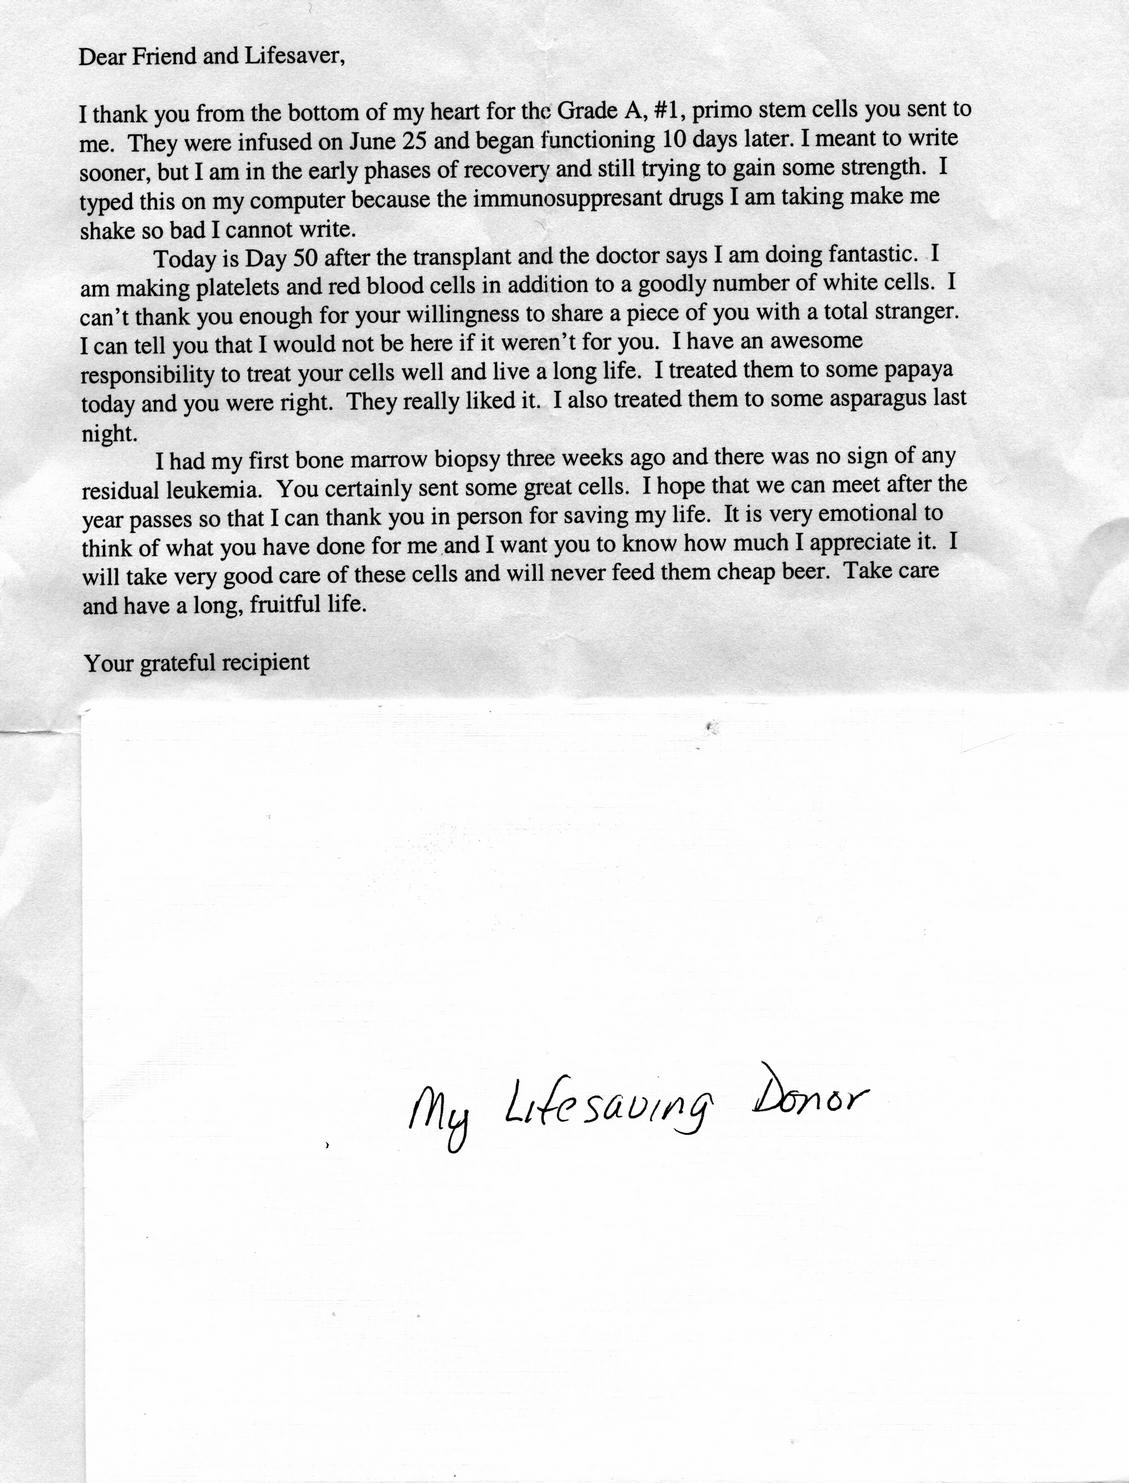 Dear Friend and Lifesaver,
I thank you from the bottom of my heart for the Grade A, #1, primo stem cells you sent to
me.  They were infused on June 25 and began functioning 10 days later. I meant to write
sooner, but I am in the early phases of recovery and still trying to gain some strength.  I
typed this on my computer because the immunosuppresant drugs I am taking make me
shake so bad I cannot write.
Today is Day 50 after the transplant and the doctor says I am doing fantastic.  I
am making platelets and red blood cells in addition to a goodly number of white cells.  I
can't thank you enough for your willingness to share a piece of you with a total stranger.
I can tell you that I would not be here if it weren't for you.  I have an awesome
responsibility to treat your cells well and live a long life.  I treated them to some papaya
today and you were right.  They really liked it.  I also treated them to some asparagus last
night.
I had my first bone marrow biopsy three weeks ago and there was no sign of any
residual leukemia.  You certainly sent some great cells.  I hope that we can meet after the
year passes so that I can thank you in person for saving my life.  It is very emotional to
think of what you have done for me and I want you to know how much I appreciate it.  I
will take very good care of these cells and will never feed them cheap beer.  Take care
and have a long, fruitful life.
Your grateful recipient
My Lifesaving Donor